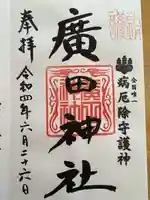 全国唯一
病厄除守護神
廣田神社
奉拝
令和四年六月二十六日